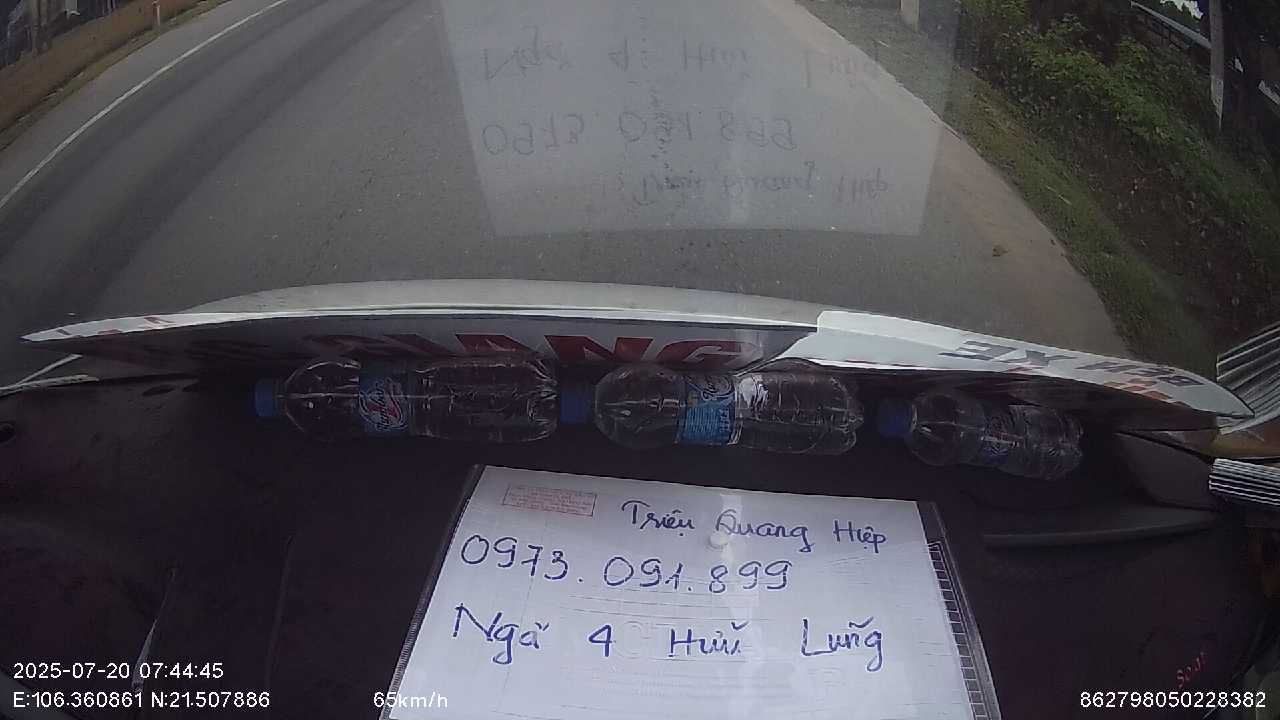 GIANG
BẾN XE
Triệu Quang Hiệp
0973.091.899
Ngã 4 Hữu Lũng
2025-07-20 07:44:45
E:106.360861 N:21.507886 65km/h 862798050228382